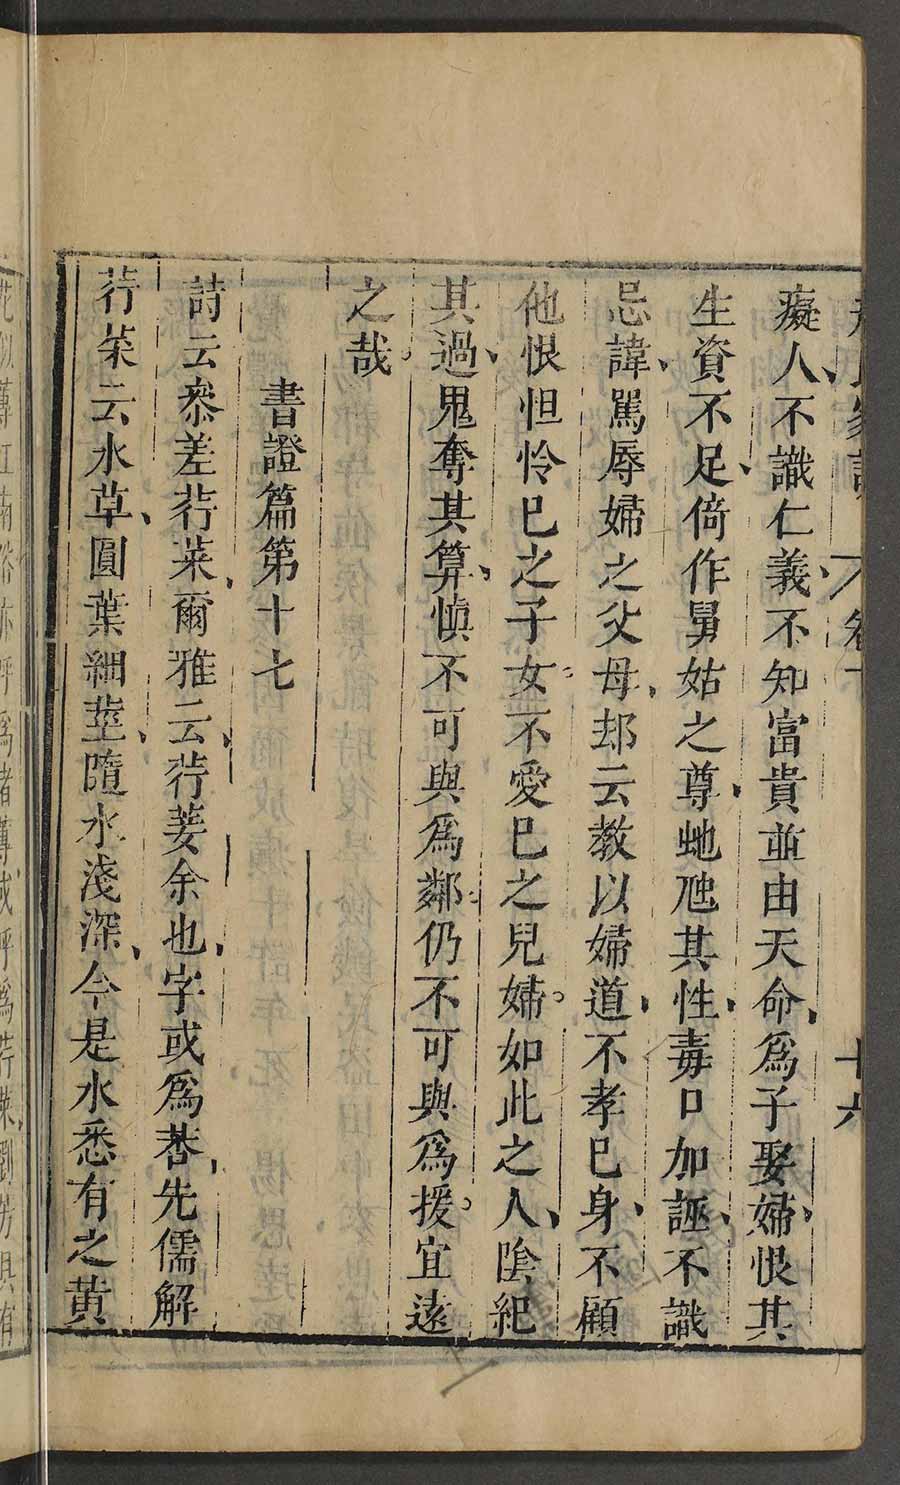 顏氏家訓 卷下 十六
癡人不識仁義不知富貴並由天命爲子娶婦恨其
生資不足倚作舅姑之尊虵虺其性毒口加誣不識
忌諱罵辱婦之父母却云教以婦道不孝已身不顧
他恨但怜已之子女不愛已之兒婦如此之人陰紀
其過鬼奪其算慎不可與爲鄰仍不可與爲援宜遠
之哉
書證篇第十七
詩云叅差荇菜爾雅云荇萎余也字或爲莕先儒解
荇菜云水草圓葉細莖隨水淺深今是水悉有之黃
花似蓴江南俗亦呼爲猪蓴或呼爲荇菜劉芳具有